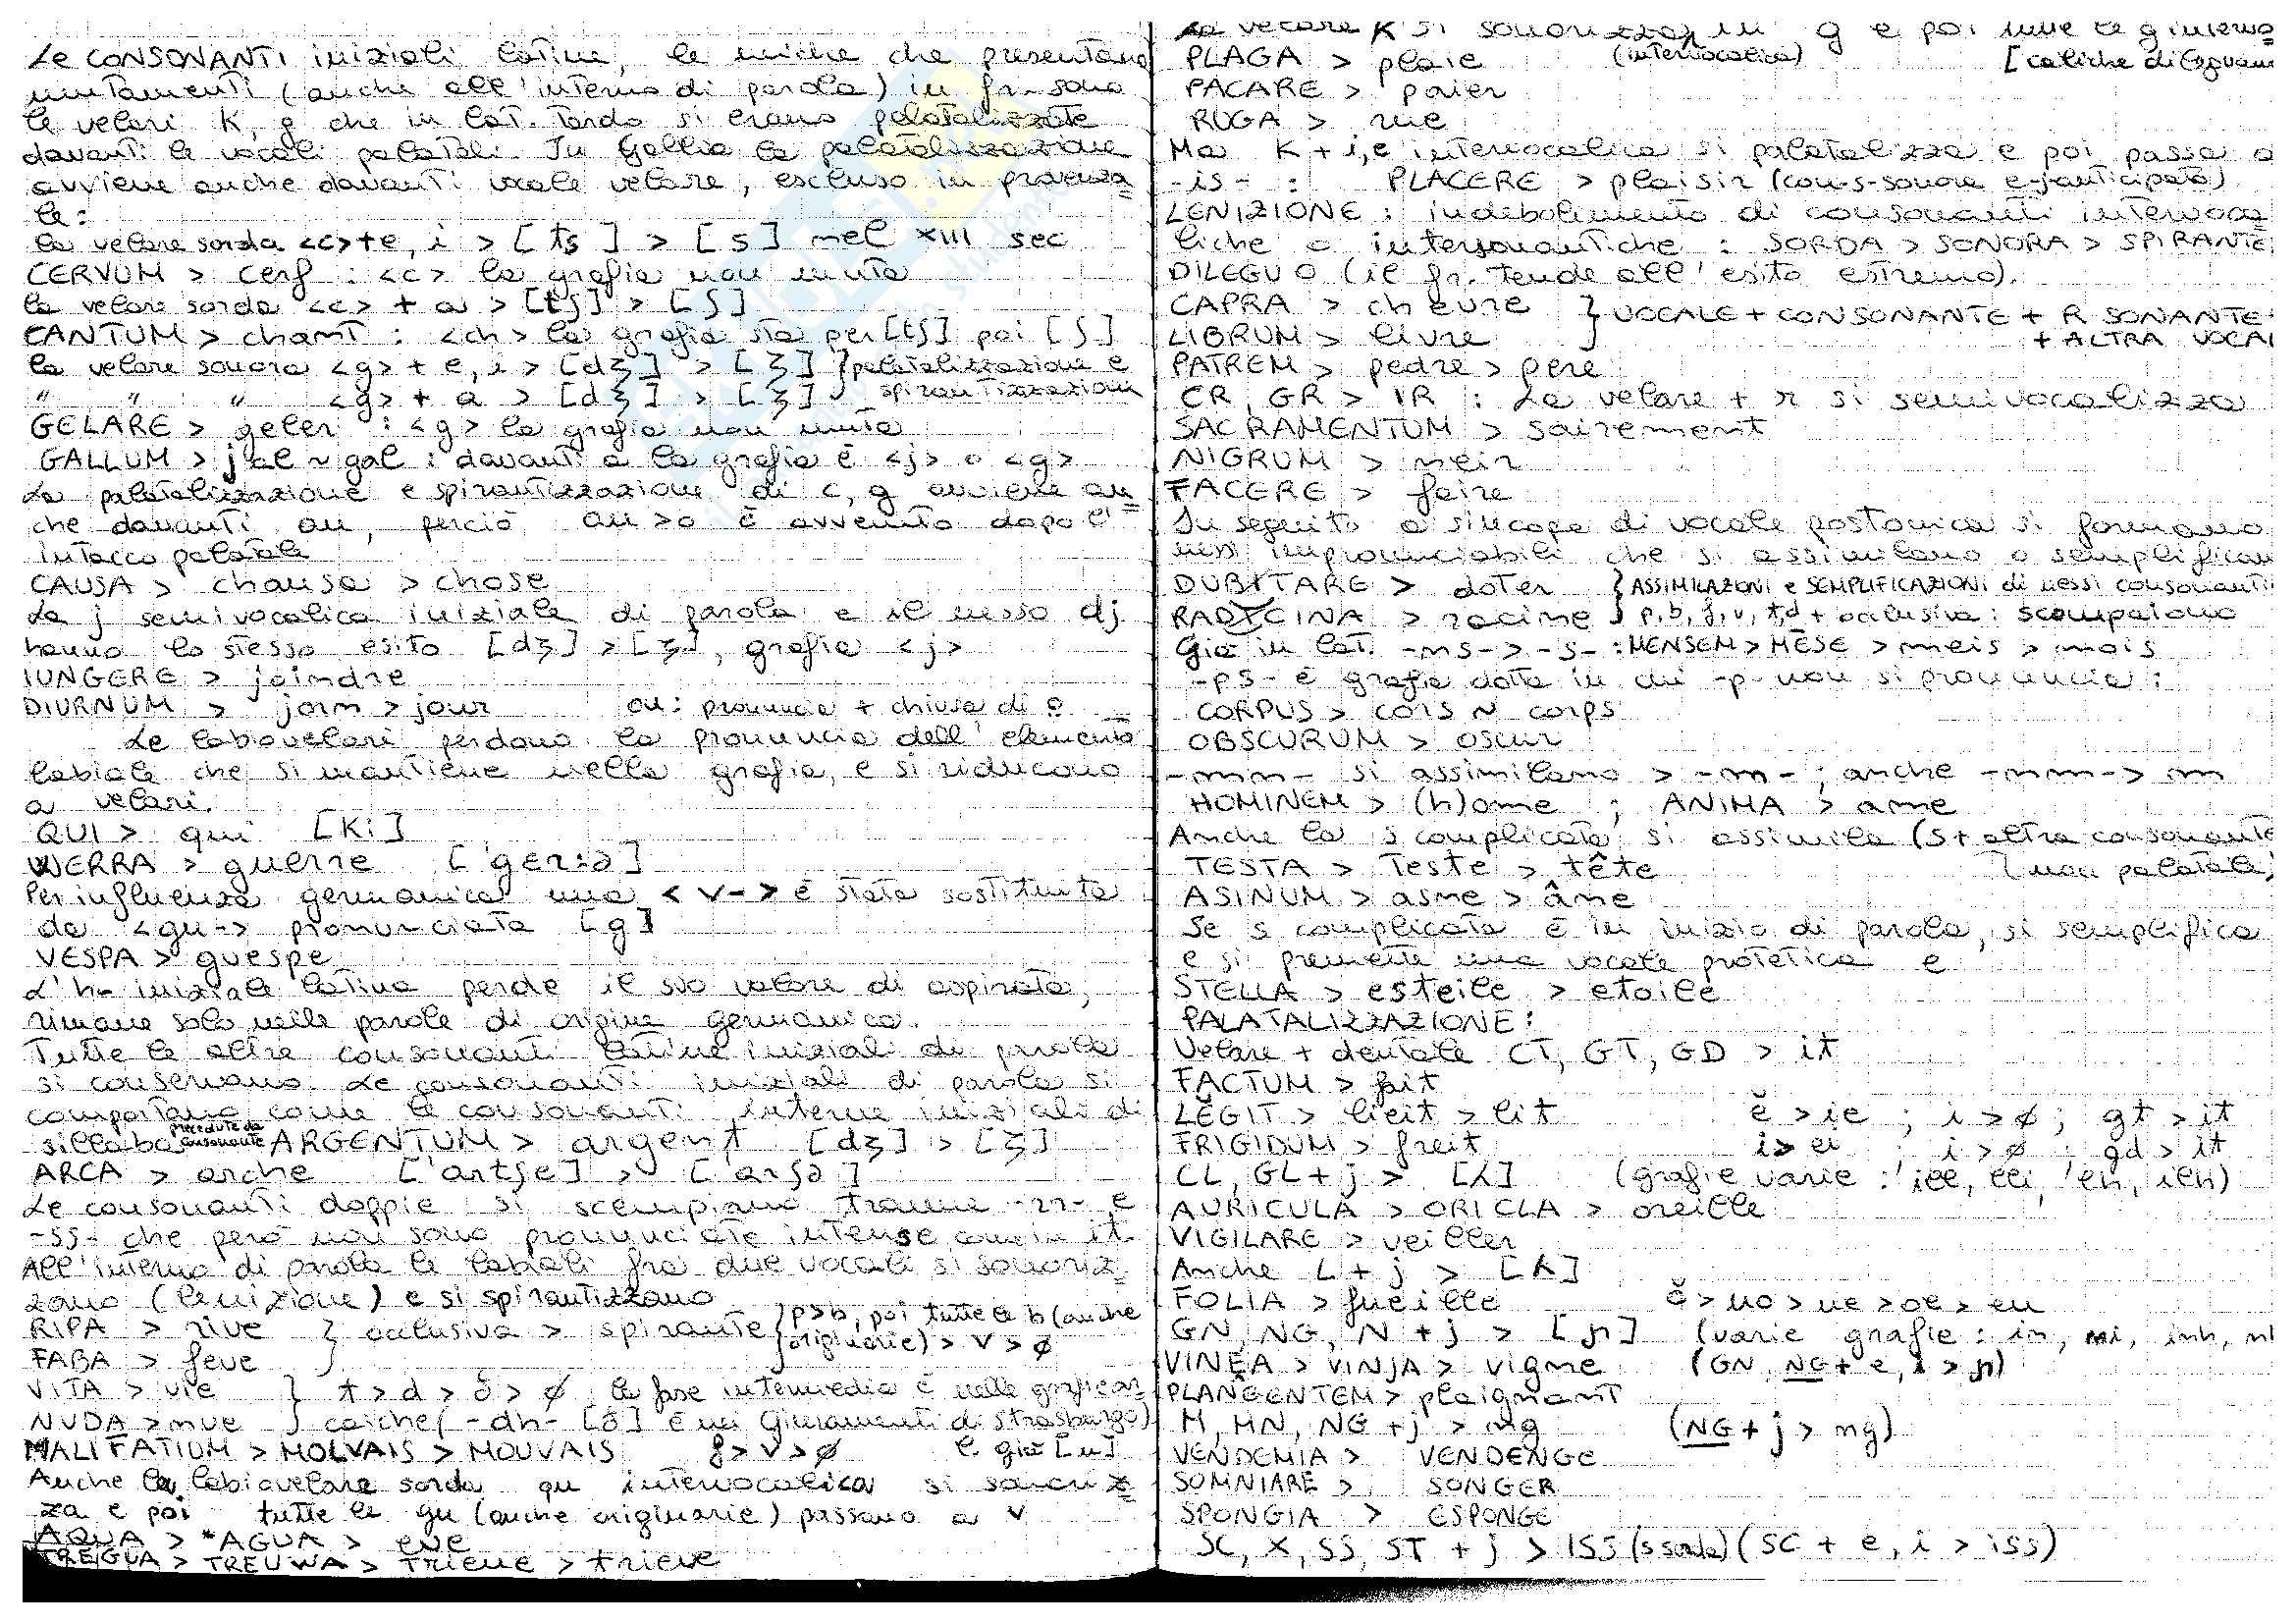 Le CONSONANTI iniziali latine, le uniche che presentano
mutamenti (anche all'interno di parola) in fr. sono
le velari K, g che in lat. tardo si erano palatalizzate
davanti le vocali palatali. In Gallia la palatalizzazione
avviene anche davanti vocale velare, escluso in provenza=
le:
la velare sorda <c>+e, i > [ts] > [s] nel XIII sec
CERVUM > cerf : <c> la grafia non muta
la velare sorda <c> + a > [tʃ] > [ʃ]
CANTUM > chant : <ch> la grafia sta per [tʃ] poi [ʃ]
la velare sonora <g> + e, i > [dʒ] > [ʒ] } palatalizzazione e
" " " <g> + a > [dʒ] > [ʒ] } spirantizzazione
GELARE > geler : <g> la grafia non muta
GALLUM > jal ~ gal : davanti a la grafia è <j> o <g>
La palatalizzazione e spirantizzazione di c, g avviene an=
che davanti au, perciò au > o è avvenuto dopo l'
intacco palatale
CAUSA > chausa > chose
La j semivocalica iniziale di parola e il nesso dj
hanno lo stesso esito [dʒ] > [ʒ], grafia <j>
IUNGERE > joindre
DIURNUM > jorn > jour ou: pronuncia + chiusa di o
Le labiovelari perdono la pronuncia dell'elemento
labiale che si mantiene nella grafia, e si riducono
a velari.
QUI > qui [Ki]
WERRA > guerre ['gerːə]
Per influenza germanica una <v-> è stata sostituita
da <gu-> pronunciata [g]
VESPA > guespe
L'h- iniziale latina perde il suo valore di aspirata,
rimane solo nelle parole di origine germanica.
Tutte le altre consonanti latine iniziali di parola
si conservano. Le consonanti iniziali di parola si
comportano come le consonanti interne iniziali di
sillaba precedute da consonante ARGENTUM > argent [dʒ] > [ʒ]
ARCA > arche ['artʃe] > ['arʃə]
Le consonanti doppie si scempiano tranne -rr- e
-ss- che però non sono pronunciate intense come in it.
All'interno di parola le labiali fra due vocali si sonoriz=
zano (lenizione) e si spirantizzano
RIPA > rive } occlusiva > spirante { p>b, poi tutte le b (anche
FABA > feve } originarie) > v > ø
VITA > vie } t > d > δ > ø la fase intermedia è nelle grafie ar=
NUDA > nue } caiche (-dh- [δ] è nei Giuramenti di Strasburgo)
MALIFATIUM > MOLVAIS > MOUVAIS f > v > ø l già [u]
Anche la labiovelare sorda qu intervocalica si sonoriz=
za e poi tutte le gu (anche originarie) passano a v
AQUA > *AGUA > eve
TREIGUA > TREUWA > Trieue > trieve
La velare K si sonorizza in g e poi tutte le g intervo=
PLAGA > plaie (intervocalica) [caliche dileguano
PACARE > paier
RUGA > rue
Ma K + i,e intervocalica si palatalizza e poi passa a
-is- : PLACERE > plaisir (con -s- sonora e j anticipata)
LENIZIONE : indebolimento di consonanti intervoca=
liche o intersonantiche : SORDA > SONORA > SPIRANTE,
DILEGUO (il fr. tende all'esito estremo).
CAPRA > chevre } VOCALE + CONSONANTE + R SONANTE
LIBRUM > livre } + ALTRA VOCAL
PATREM > pedre > pere
CR, GR > IR : La velare + r si semivocalizza
SACRAMENTUM > sairement
NIGRUM > neir
FACERE > faire
In seguito a sincope di vocale postonica si formano
nessi impronunciabili che si assimilano o semplifican
DUBITARE > doter } ASSIMILAZIONI e SEMPLIFICAZIONI di nessi consonanti
RADICINA > racine } p, b, f, v, t, d + occlusiva : scompaiono
Già in lat. -ns- > -s- : MENSEM > MĒSE > meis > mois
-ps- è grafia dotta in cui -p- non si pronuncia :
CORPUS > cors ~ corps
OBSCURUM > oscur
-mn- si assimilano > -m- ; anche -nm- > m
HOMINEM > (h)ome ; ANIMA > ame
Anche la s complicata si assimila (s + altra consonante
TESTA > Teste > tête [non palatale)
ASINUM > asne > âne
Se s complicata è in inizio di parola, si semplifica
e si premette una vocale protetica e
STELLA > esteile > etoile
PALATALIZZAZIONE :
Velare + dentale CT, GT, GD > it
FACTUM > fait
LĔGIT > lieit > lit ĕ > ie ; i > ø ; gt > it
FRIGIDUM > freit i > ei ; i > ø ; gd > it
CL, GL + j > [ʎ] (grafie varie : ill, lli, lh, ilh)
AURICULA > ORICLA > oreille
VIGILARE > veiller
Anche L + j > [ʎ]
FOLIA > fueille ŏ > uo > ue > oe > eu
GN, NG, N + j > [ɲ] (varie grafie : in, ni, inh, nh
VINEA > VINJA > vigne (GN, NG + e, i > ɲ)
PLANGENTEM > plaignant
M, MN, NG + j > ng (NG + j > ng)
VENDEMIA > VENDENGE
SOMNIARE > SONGER
SPONGIA > ESPONGE
SC, X, SS, ST + j > ISS (s sorda) (SC + e, i > iss)